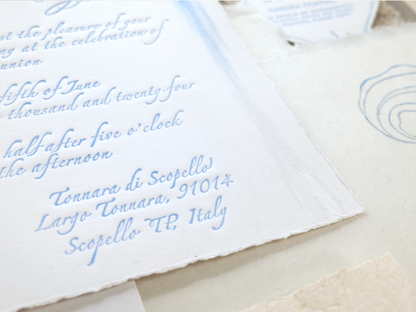 st the pleasure of your
ng at the celebration of
union
fifth of June
thousand and twenty-four
half after five o'clock
the afternoon
Tonnara di Scopello
Largo Tonnara, 91014
Scopello TP, Italy